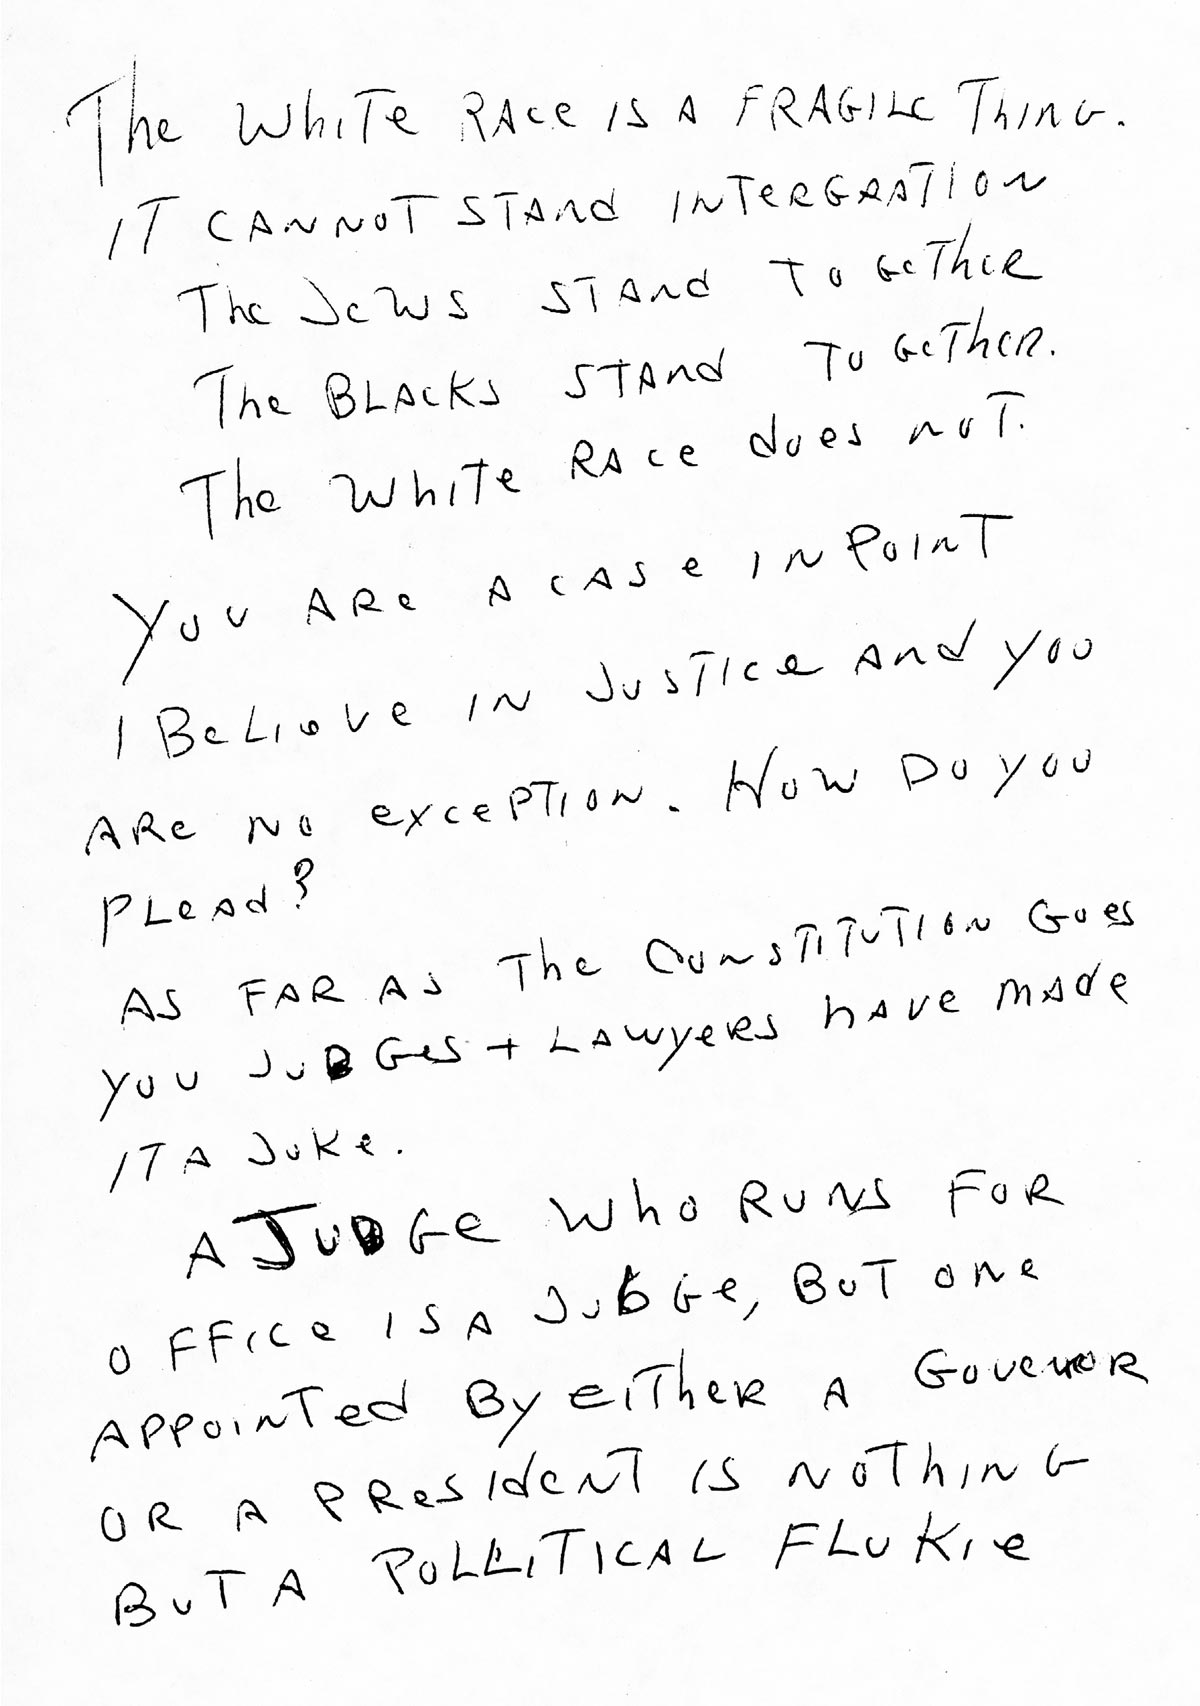 The White Race is a FRAGILe Thing.
iT CANNOT STANd iNTeRGRATiON
The JeWS STANd ToGeTheR
The BLACKS STANd ToGeTheR.
The White Race does noT.
You ARe A CASe iN PoiNT
I BeLieve iN JuSTice ANd you
ARe No exception. How Do you
PLeAd?
AS FAR AS The CoNSTiTuTioN Goes
you JuDGes + LAwyeRS hAve mAde
iT A JoKe.
A JUDGe Who RuNS FoR
oFFice iS A JuDGe, BuT oNe
APPoiNTed By eiTheR A GoveNoR
oR A PResideNT iS NoThiNG
BuT A PoLLiTiCAL FLuKie